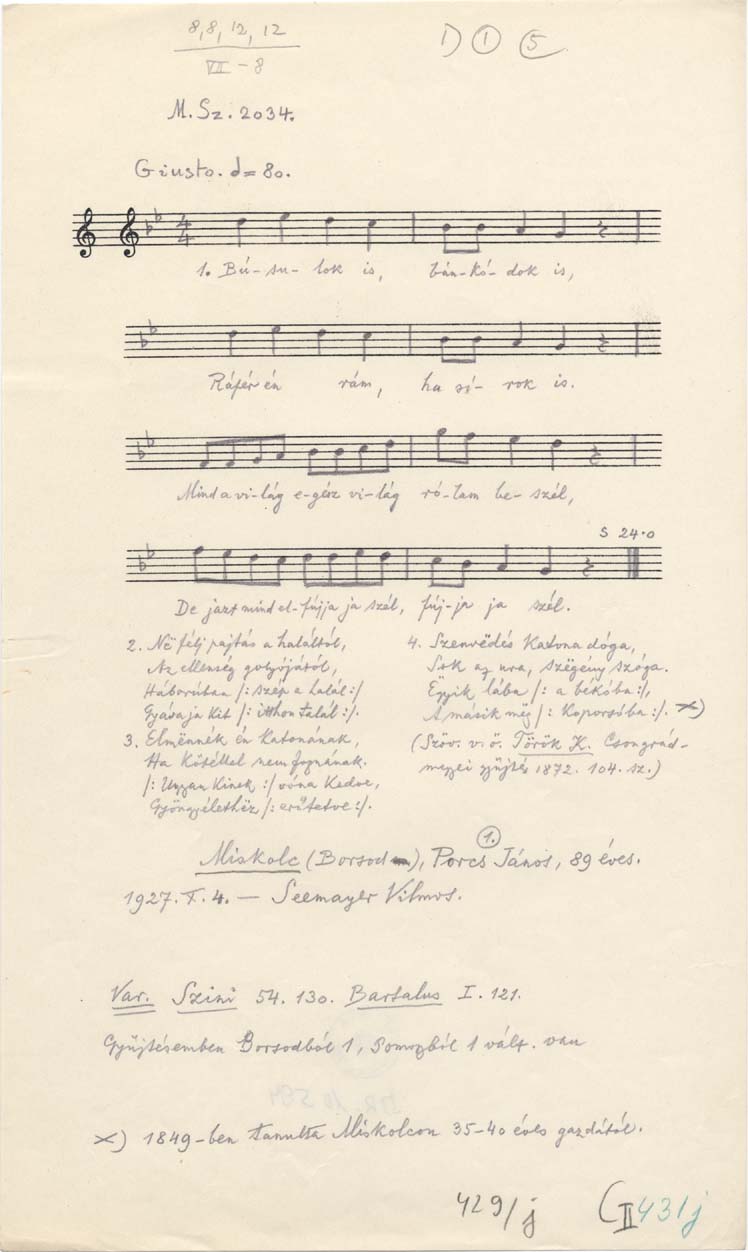 8, 8, 12, 12
VII - 8
D 1 5
M. Sz. 2034.
Giusto. d = 80.
1. Bú- su- lok is, bán-kó- dok is,
Ráfér én rám, ha sí- rok is.
Mind a vi-lág e-gész vi-lág ró-lam be- szél,
S 24·0
De jazt mind el-fújja ja szél, fúj-ja ja szél.
2. Në félj pajtás a haláltól,
Az ellenség golyójától,
Háborúban /: szép a halál :/
Gyáva ja kit /: itthon talál :/.
3. Elmënnék én katonának,
Ha kötéllel nem fognának.
/: Ugyan kinek :/ vóna kedve,
Gyöngyélethëz /: erőtetve :/.
4. Szenvëdés katona dóga,
Sok az ura, szëgény szóga.
Ëgyik lába /: a békóba :/,
A másik mëg /: koporsóba :/. x)
(Szöv. v. ö. Török K. Csongrád-
megyei gyűjtés 1872. 104. sz.)
1.
Miskolc (Borsod), Porcs János, 89 éves.
1927. X. 4. — Seemayer Vilmos.
Var. Szini 54. 130. Bartalus I. 121.
Gyűjtésemben Borsodból 1, Somogyból 1 vált. van
x) 1849-ben tanulta Miskolcon 35-40 éves gazdától.
429/j C II 431j